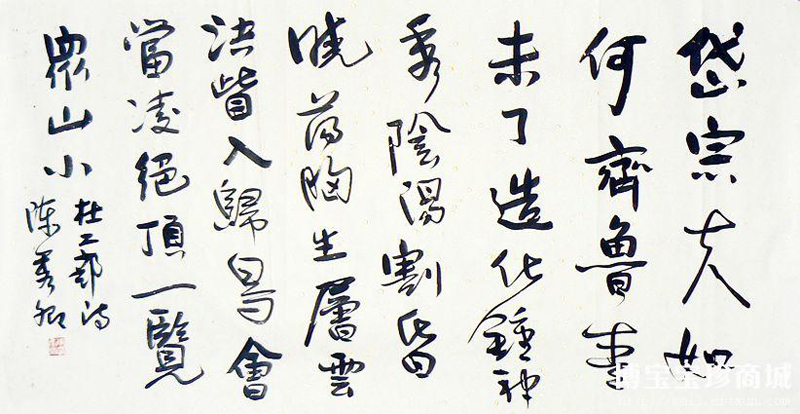 岱宗夫如
何齊魯青
未了造化鍾神
秀陰陽割昏
曉蕩胸生層雲
決眥入歸鳥會
當凌絕頂一覽
眾山小
杜工部詩
陈秀卿
博宝宝珍商城